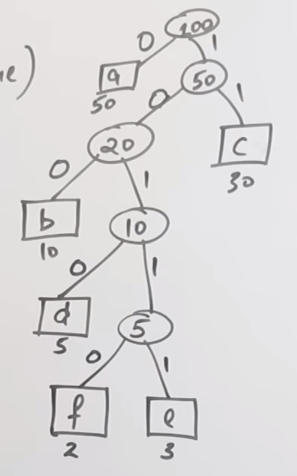 100
0 1
e)
a 50
50
0 1
20 c
30
0 1
b 10
10
0 1
d 5
5
0 1
f e
2 3